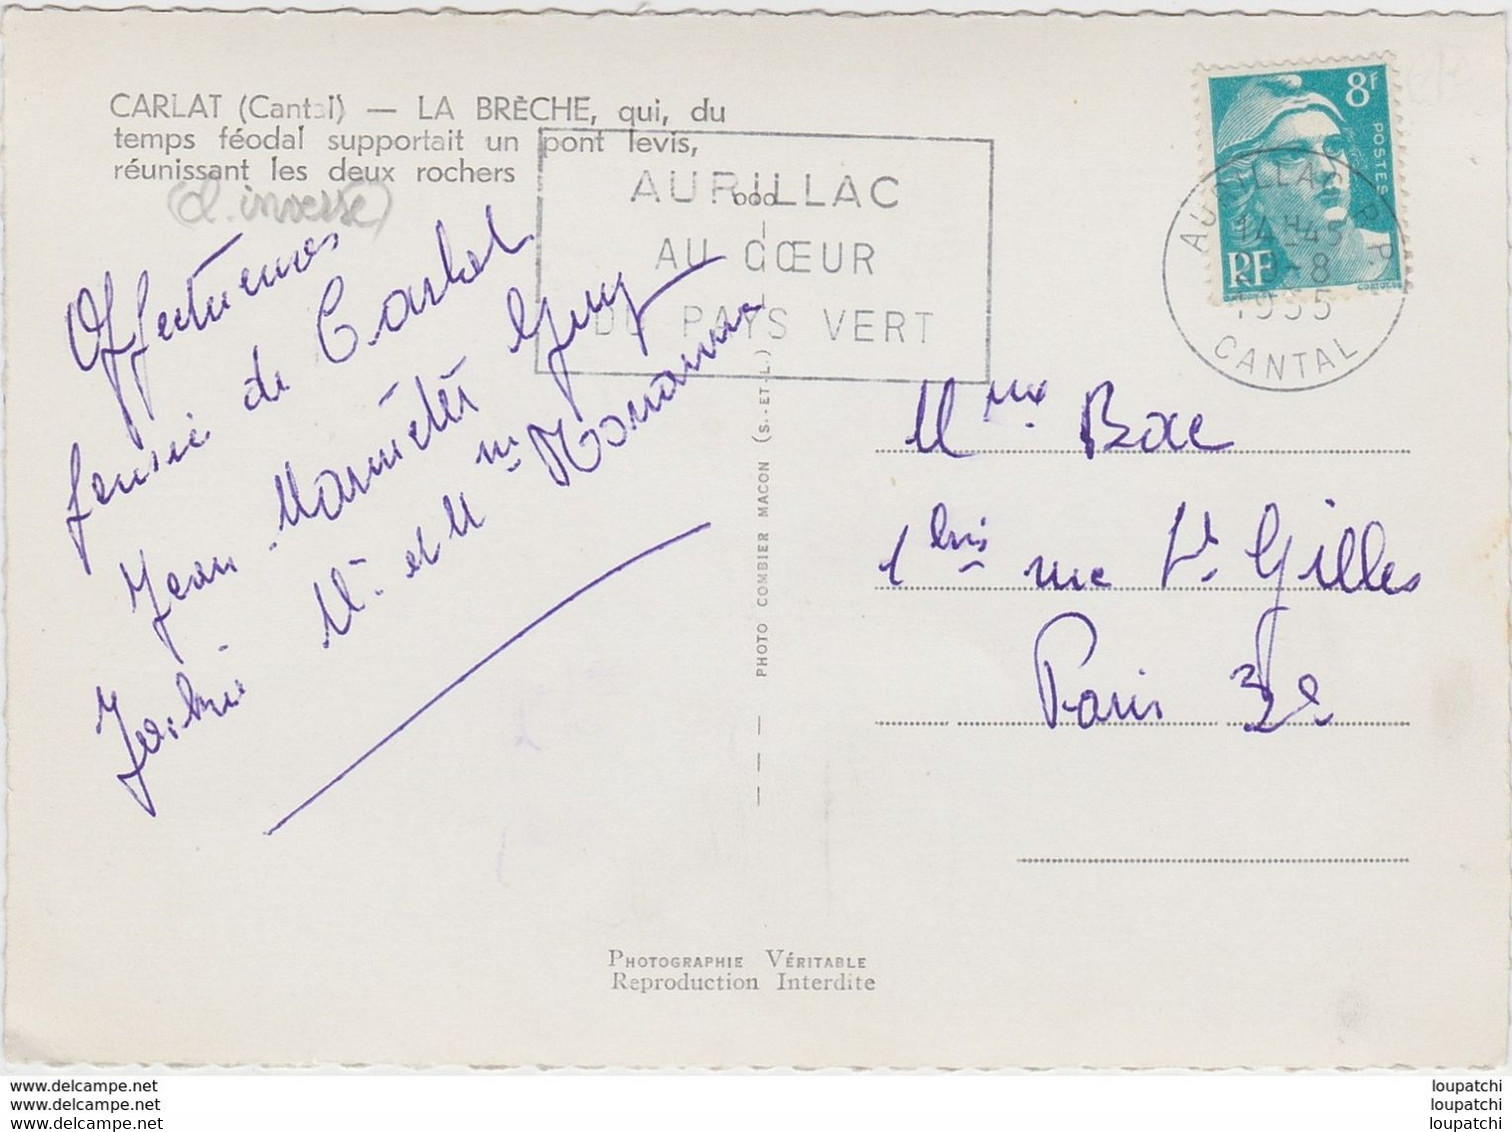 CARLAT (Cantal) — LA BRÈCHE, qui, du
temps féodal supportait un pont levis,
réunissant les deux rochers
AURILLAC
AU CŒUR
DU PAYS VERT
8F
POSTES
RF
AURILLAC R.P.
14H45
-8
1955
CANTAL
de Carlat
Jean
Guy
Mr et Mme
PHOTO COMBIER MACON (S.-ET-L.)
Mme Bac
1bis rue St Gilles
Paris 3e
PHOTOGRAPHIE VÉRITABLE
Reproduction Interdite
owl.delcampe.net
www.delcampe.net
www.delcampe.net
loupatchi
loupatchi
loupatchi